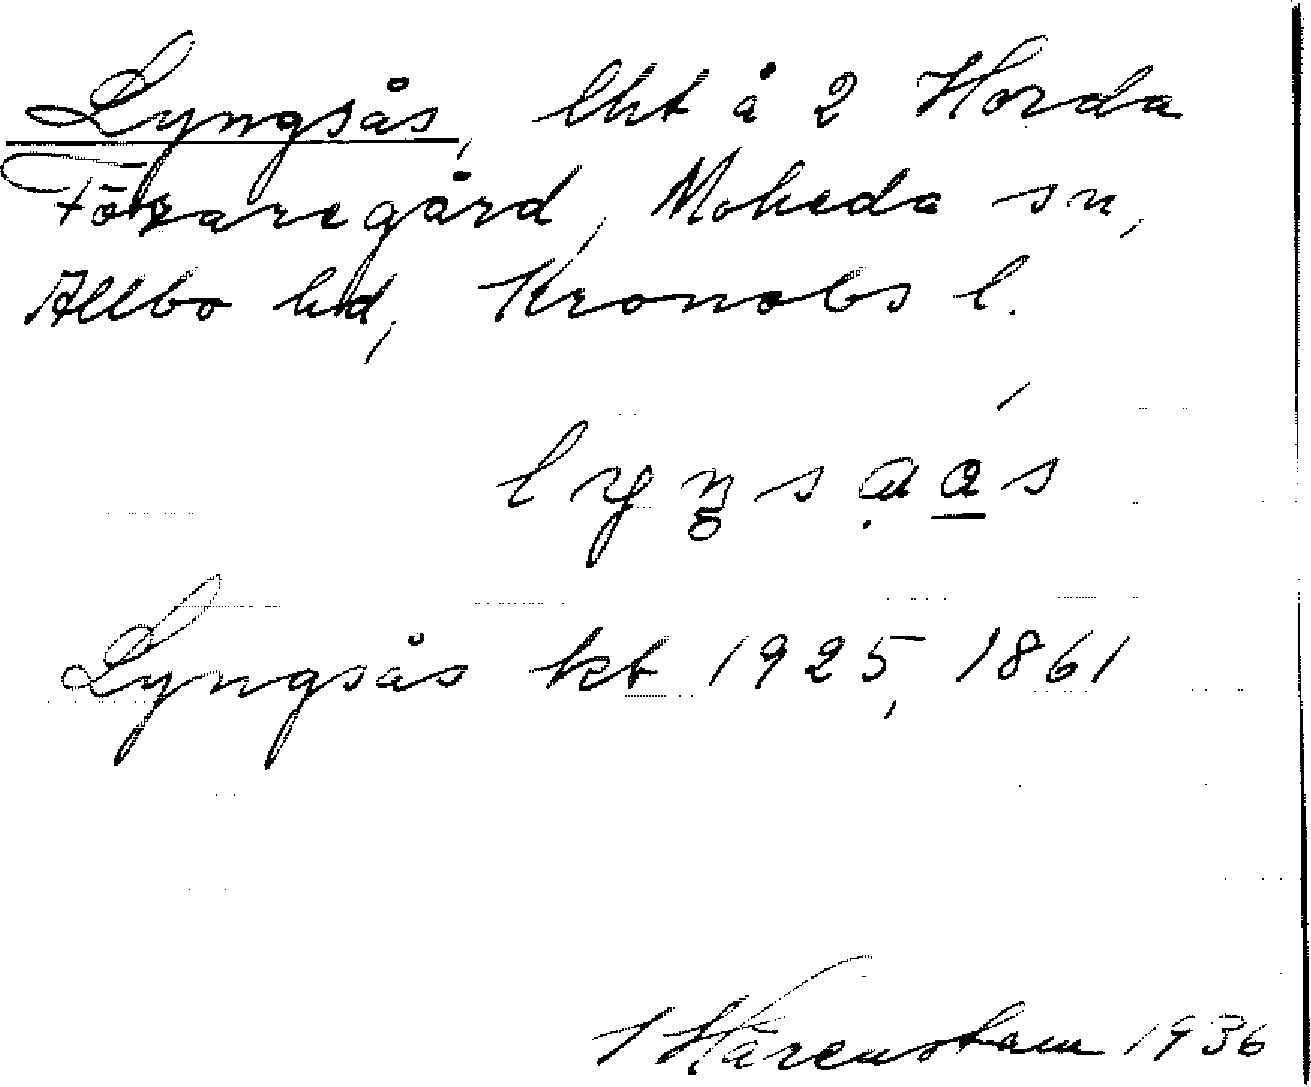 Lyngsås, lht å 2 Horda
Föraregård, Moheda sn,
Allbo hd, Kronobs l.
lyŋsɑas
Lyngsås kt 1925, 1861
I Kärenstam 1936